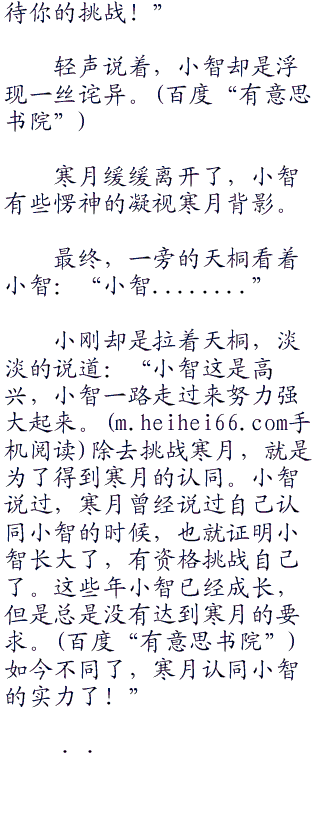 待你的挑战！”
轻声说着，小智却是浮
现一丝诧异。(百度“有意思
书院”)
寒月缓缓离开了，小智
有些愣神的凝视寒月背影。
最终，一旁的天桐看着
小智：“小智........”
小刚却是拉着天桐，淡
淡的说道：“小智这是高
兴，小智一路走过来努力强
大起来。(m.heihei66.com手
机阅读)除去挑战寒月，就是
为了得到寒月的认同。小智
说过，寒月曾经说过自己认
同小智的时候，也就证明小
智长大了，有资格挑战自己
了。这些年小智已经成长，
但是总是没有达到寒月的要
求。(百度“有意思书院”)
如今不同了，寒月认同小智
的实力了！”
. .